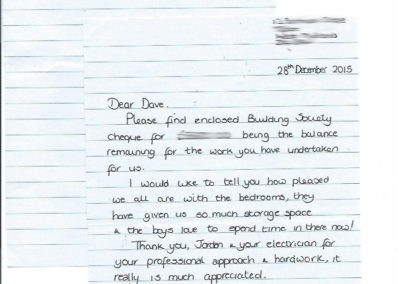 28th December 2015
Dear Dave.
Please find enclosed Building Society
cheque for being the balance
remaining for the work you have undertaken
for us.
I would like to tell you how pleased
we all are with the bedrooms, they
have given us so much storage space
& the boys love to spend time in there now!
Thank you, Jordan & your electrician for
your professional approach & hardwork, it
really is much appreciated.